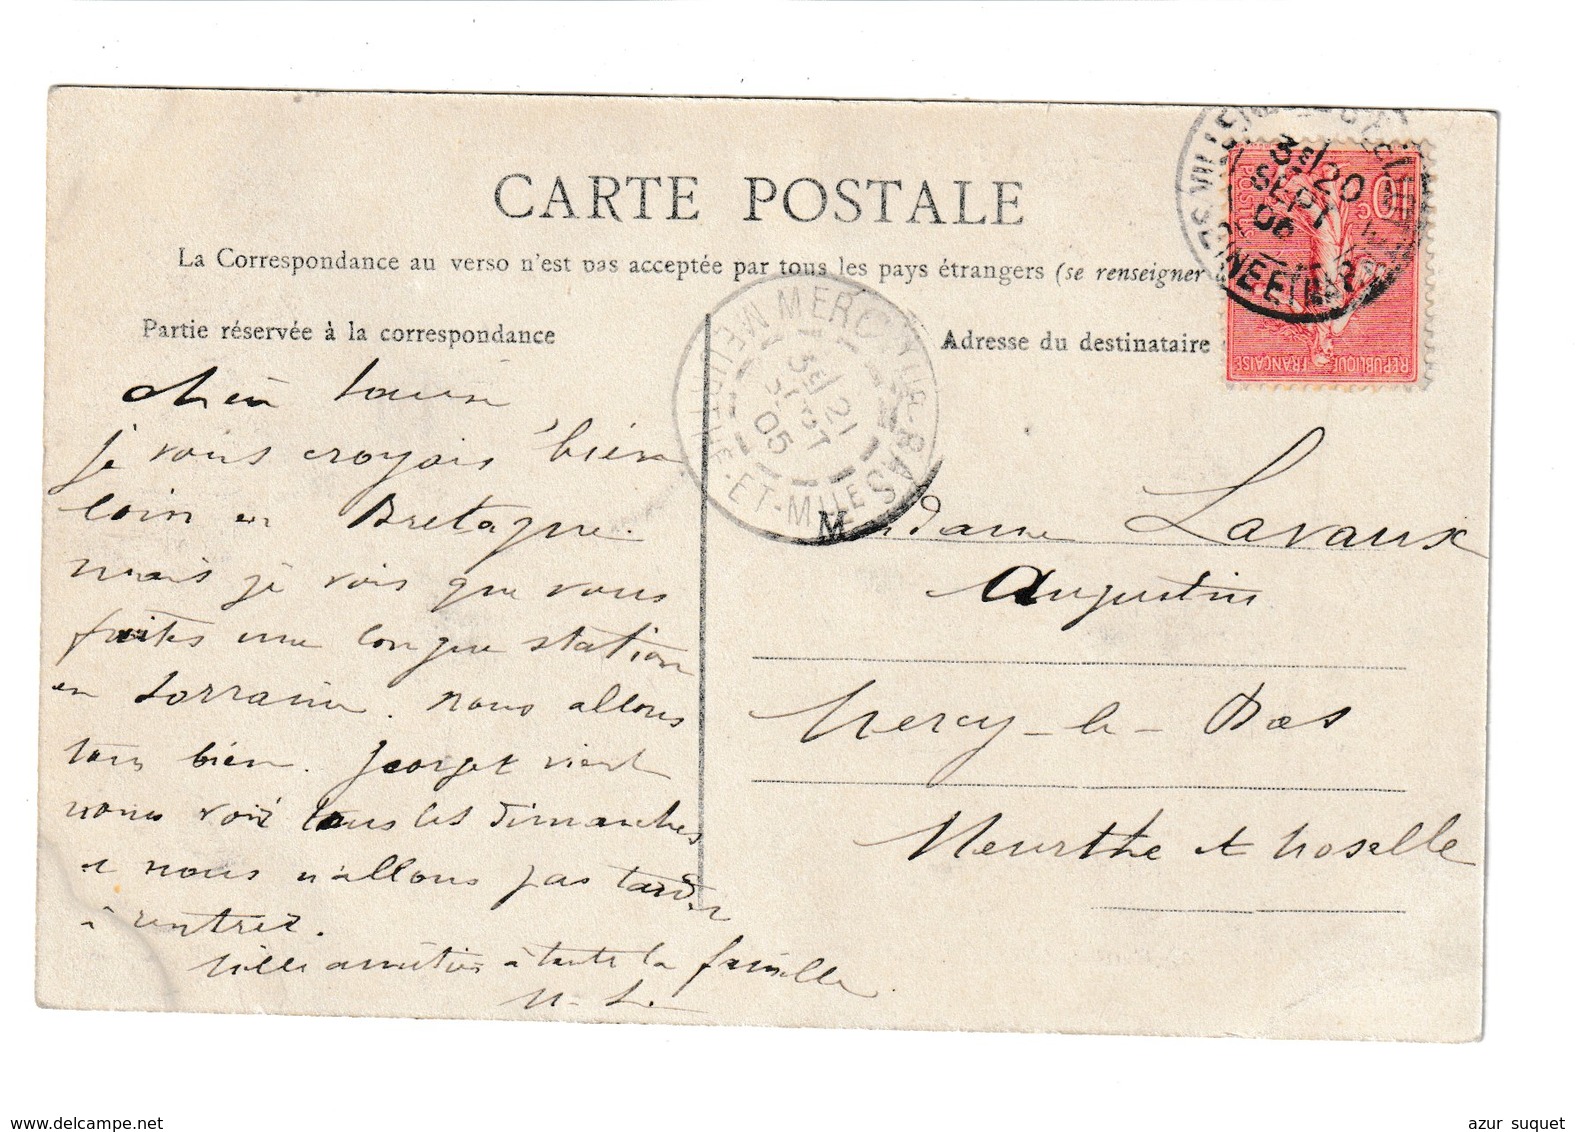 CARTE POSTALE
La Correspondance au verso n'est pas acceptée par tous les pays étrangers (se renseigner
Partie réservée à la correspondance
Adresse du destinataire
chère Louise
je vous croyais bien
loin en Bretagne.
mais je vois que vous
faites une longue station
en Lorraine. nous allons
tous bien. Georget vient
nous voir tous les dimanches
et nous n'allons pas tarder
à rentrer.
Mille amitiés à toute la famille.
L.
Madame Lavaux
Augustin
Mercy-le-Bas
Meurthe et Moselle
MERCY-LE-BAS
MEURTHE-ET-MOSELLE
3E/21
SEPT
05
3E/20
SEPT
POSTES
10c
REPUBLIQUE FRANÇAISE
www.delcampe.net
azur suquet